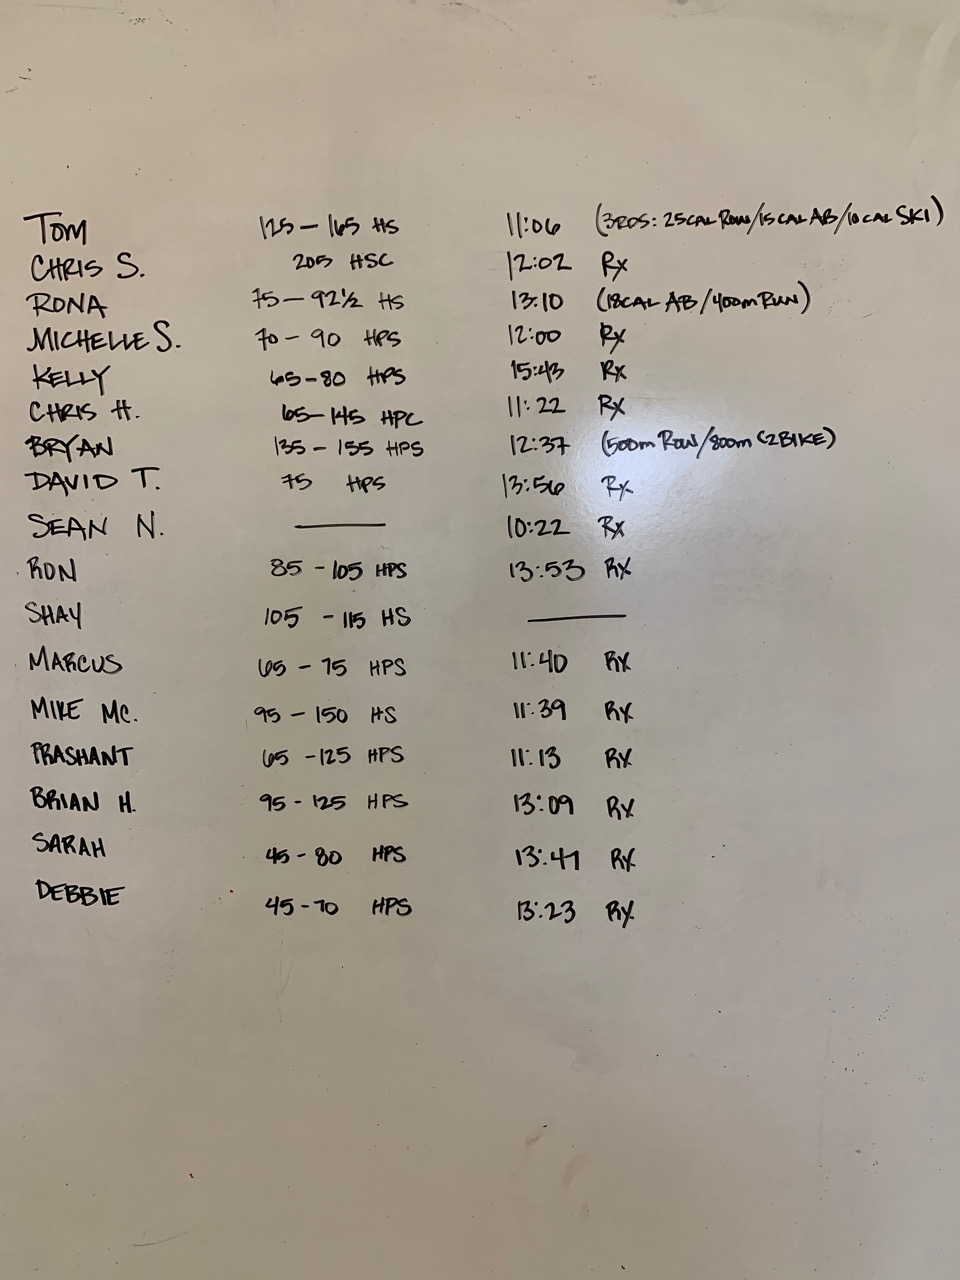 Tom 125 - 165 HS 11:06 (3RDS: 25CAL ROW/15CAL AB/10CAL SKI)
CHRIS S. 205 HSC 12:02 Rx
RONA 75 - 92½ HS 13:10 (18CAL AB/400m RUN)
MICHELLE S. 70 - 90 HPS 12:00 Rx
KELLY 65-80 HPS 15:43 Rx
CHRIS H. 65-145 HPC 11:22 Rx
BRYAN 135 - 155 HPS 12:37 (500m ROW/800m C2BIKE)
DAVID T. 75 HPS 13:56 Rx
SEAN N. — 10:22 Rx
RON 85 - 105 HPS 13:53 Rx
SHAY 105 - 115 HS —
MARCUS 65 - 75 HPS 11:40 RX
MIKE MC. 95 - 150 HS 11:39 RX
PRASHANT 65 - 125 HPS 11:13 RX
BRIAN H. 95 - 125 HPS 13:09 RX
SARAH 45 - 80 HPS 13:47 RX
DEBBIE 45 - 70 HPS 13:23 RX